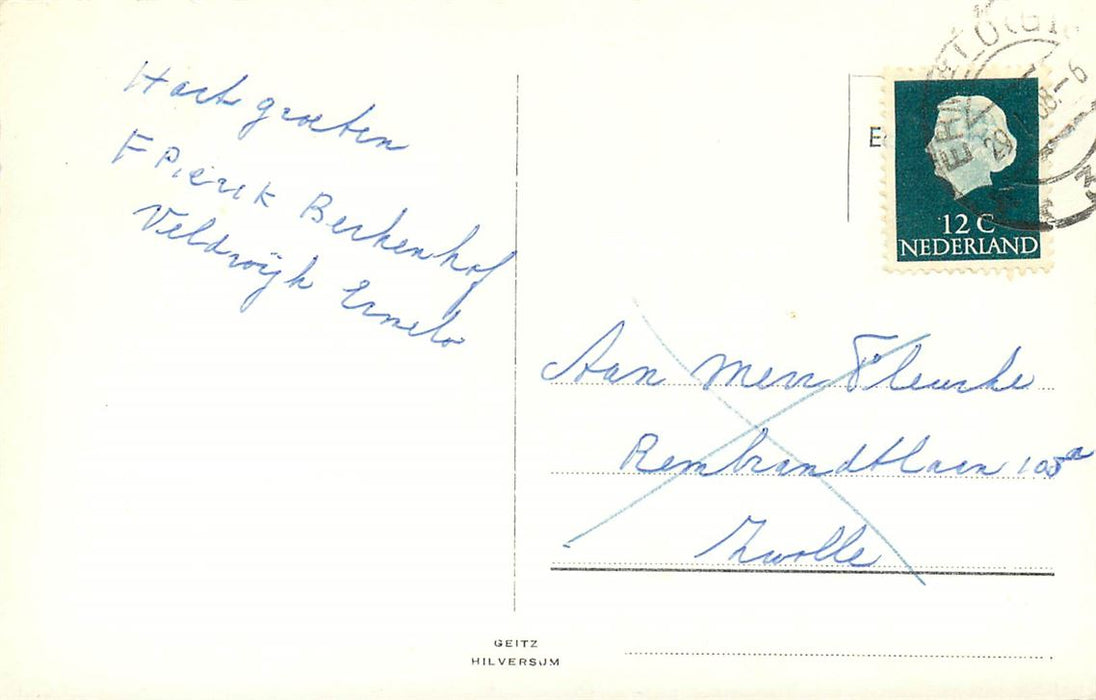 Hart groeten
F Pierik Berkenhof
Veldwijk Ermelo
12 C
NEDERLAND
Aan Mevr Fleurke
Rembrandtlaan 105a
Zwolle
GEITZ
HILVERSUM